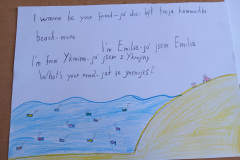 I wanna be your friend-já chci být tvoje kamarátka
beach-more
I'm Emilia-já jsem Emilia
I'm from Ykraina-já jsem s Ykrajny
What's your name-jak se jmenuješ?